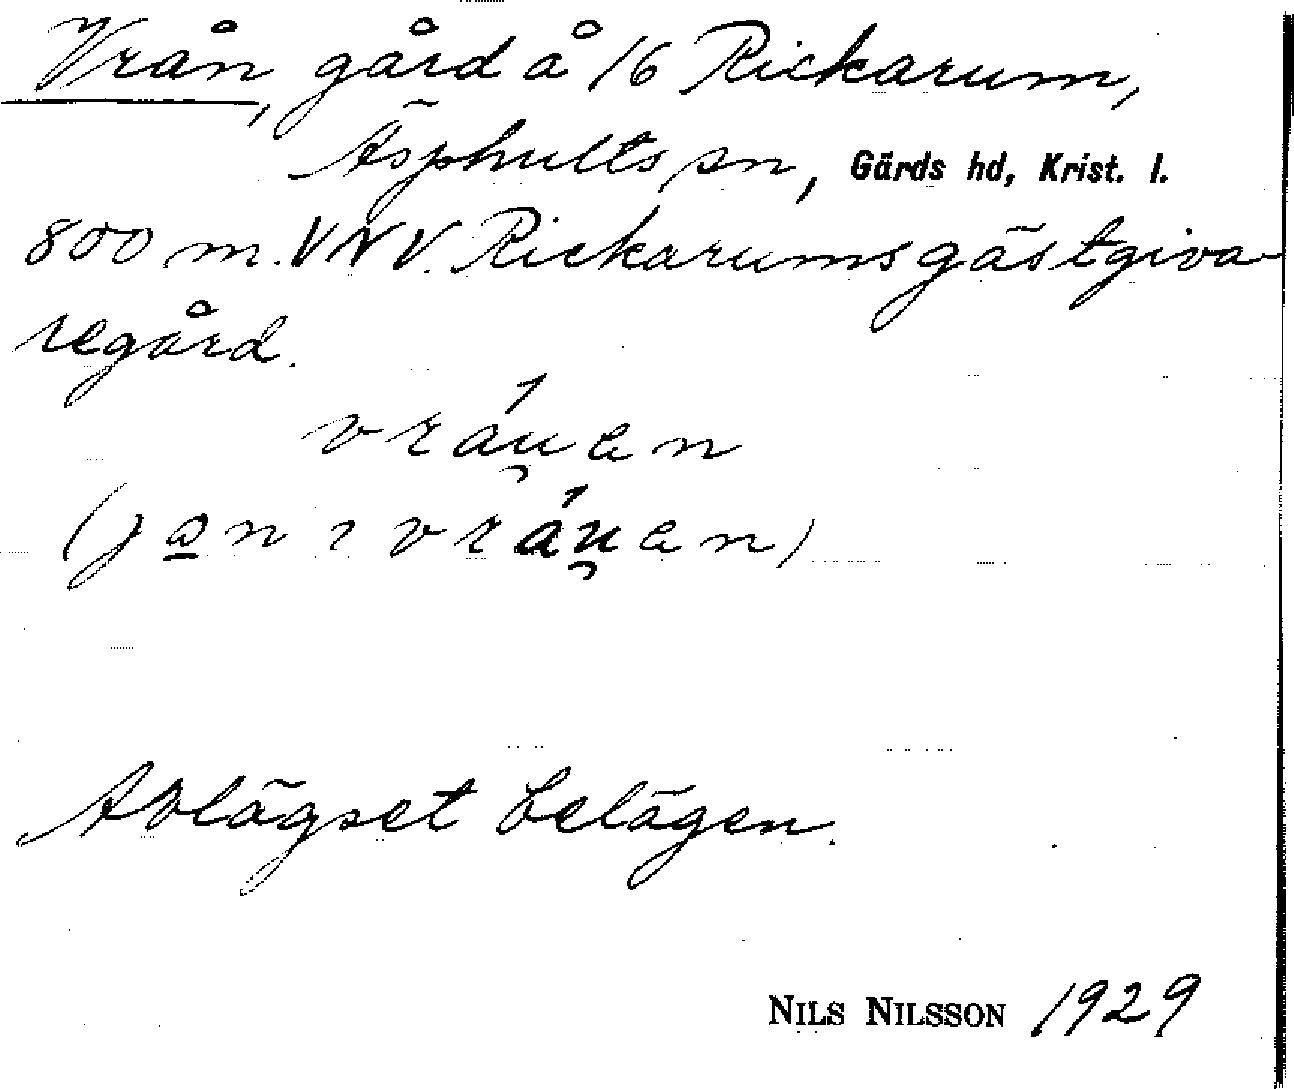 Vrån, gård å 16 Rickarum,
Äsphults sn, Gärds hd, Krist. l.
800 m. VNV. Rickarums gästgiva-
regård.
vráu̯an
(jo̲n ı vráu̯an)
Avlägset belägen.
NILS NILSSON 1929